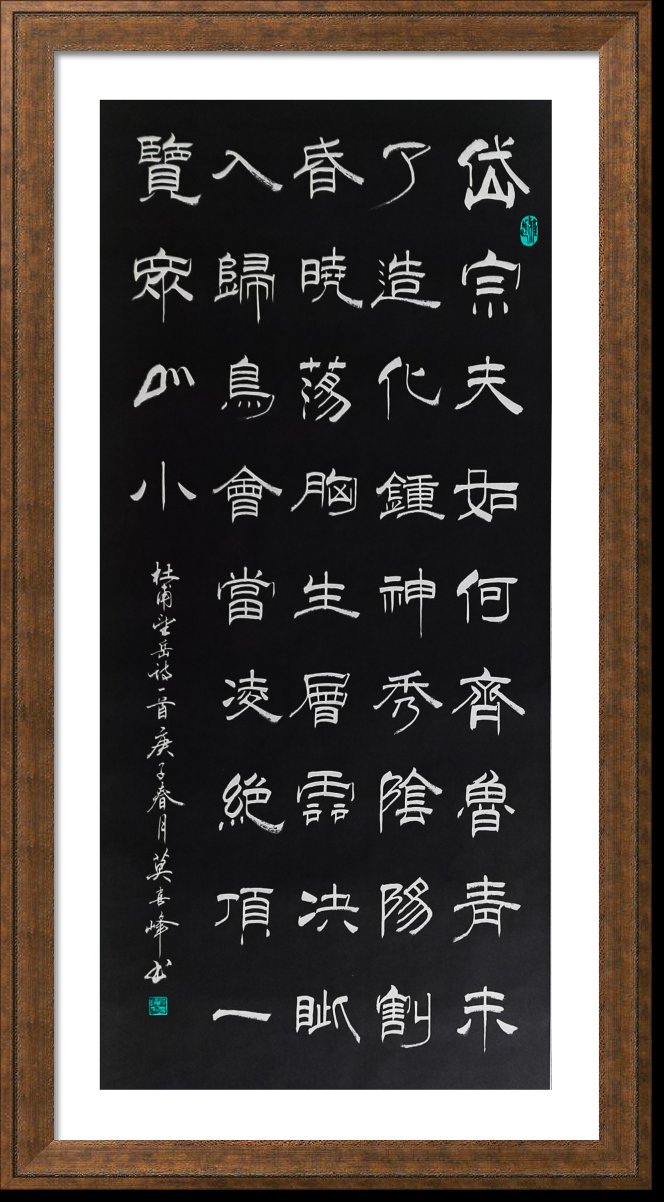 岱宗夫如何齊魯青未
了造化鍾神秀陰陽割
昏曉蕩胸生層雲決眦
入歸鳥會當凌絕頂一
覽眾山小
杜甫望岳诗一首庚子春月莫喜峰书